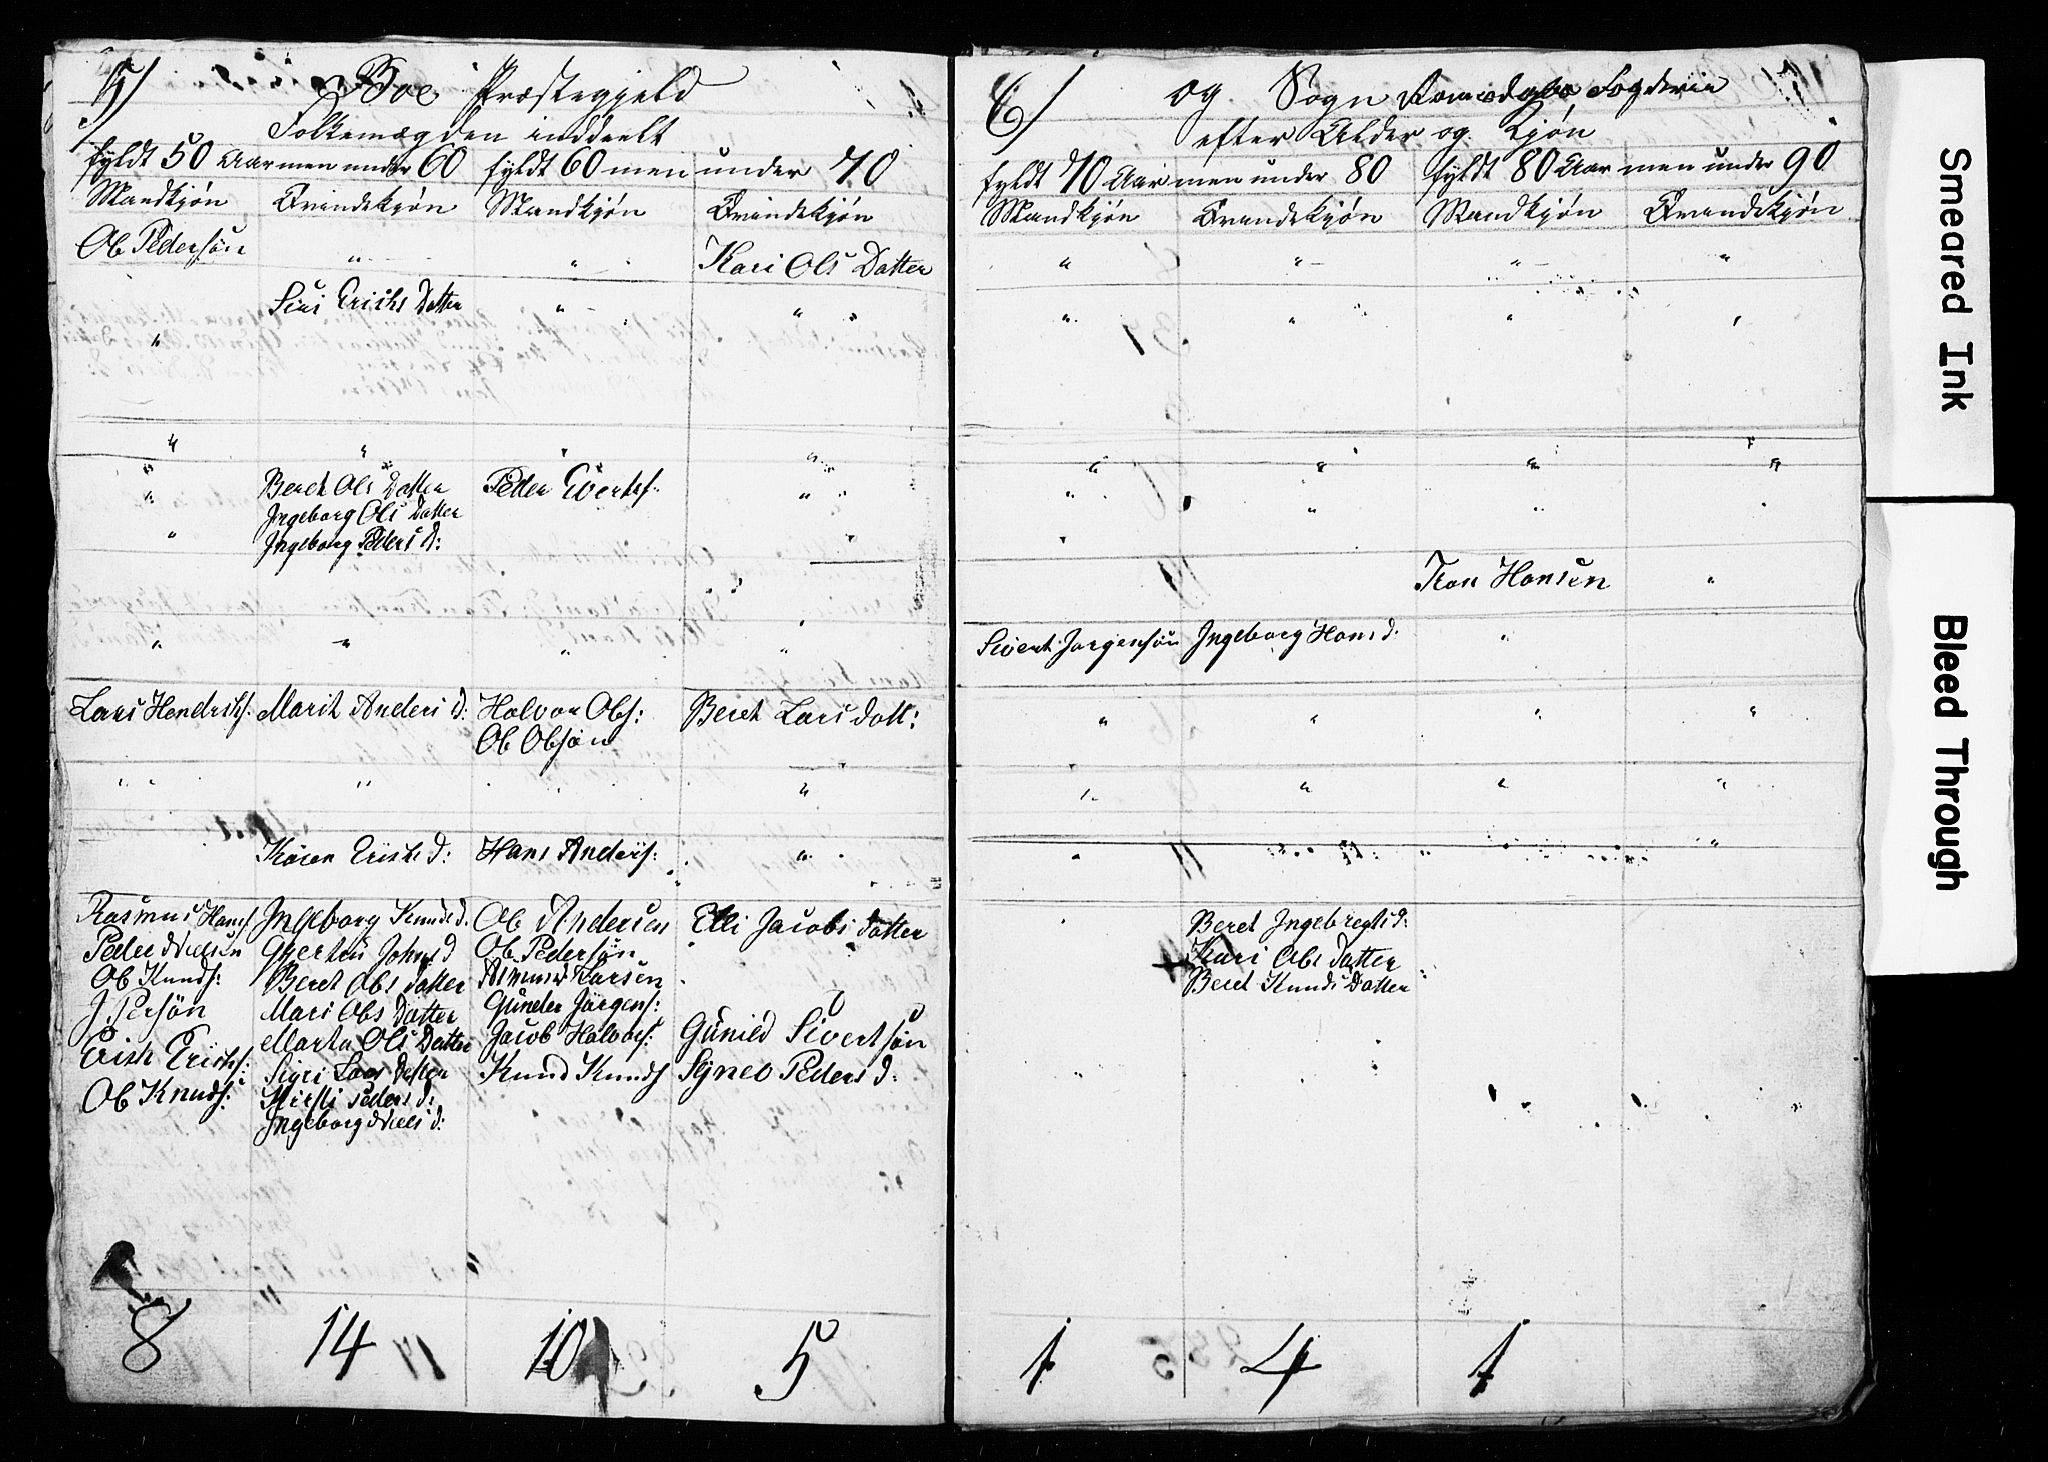 5/ Boe Præstegjeld
Folkemægden inddeelt
fyldt 50 Aar men under 60 fyldt 60 men under 70
Mandkjøn Qvindekjøn Mandkjøn Qvindekjøn
Ol Pedersøn " " Kari Ols Datter
Siri Erichs Datter " " "
"
" " " "
" Beret Ols Datter Peder Siverts: "
" Ingeborg Ols Datter
" Ingeborg Peders d:
" " " "
Lars Hendrichs: Marit Anders d: Halvor Ols: Beret Lars datt:
Ol Olsøn
" " " "
Karen Erichs d: Hans Anders: "
Rasmus Hans: Ingeborg Knuds d. Ol Andersen Elli Jacobs datter
Peder Nielsen Gjertru Johns d Ol Pedersøn
Ol Knuds: Beret Ols datter Asmund Larsen
J. Persøn Mari Ols Datter Gunder Jørgens:
Erich Erichs: Marta Ols Datter Jacob Halvors: Gunild Sivertsøn
Ol Knuds: Sigri Lars Datter Knud Knuds Synev Peders d:
Kirsti Peders d:
Ingeborg Niels d:
8 14 10 5
6/ og Sogn Romsdals Fogderie
efter Alder og Kjøn
fyldt 70 Aar men under 80 fyldt 80 Aar men under 90
Mandkjøn Qvindekjøn Mandkjøn Qvindekjøn
" " " "
" " " "
" " " "
" " " "
Tron Hansen "
Sivert Jørgensøn Ingeborg Hans d: "
" " " "
" " " "
" " "
Beret Ingebregts d:
Kari Ols Datter
Beret Knuds Datter
"
1 4 1
Smeared Ink
Bleed Through